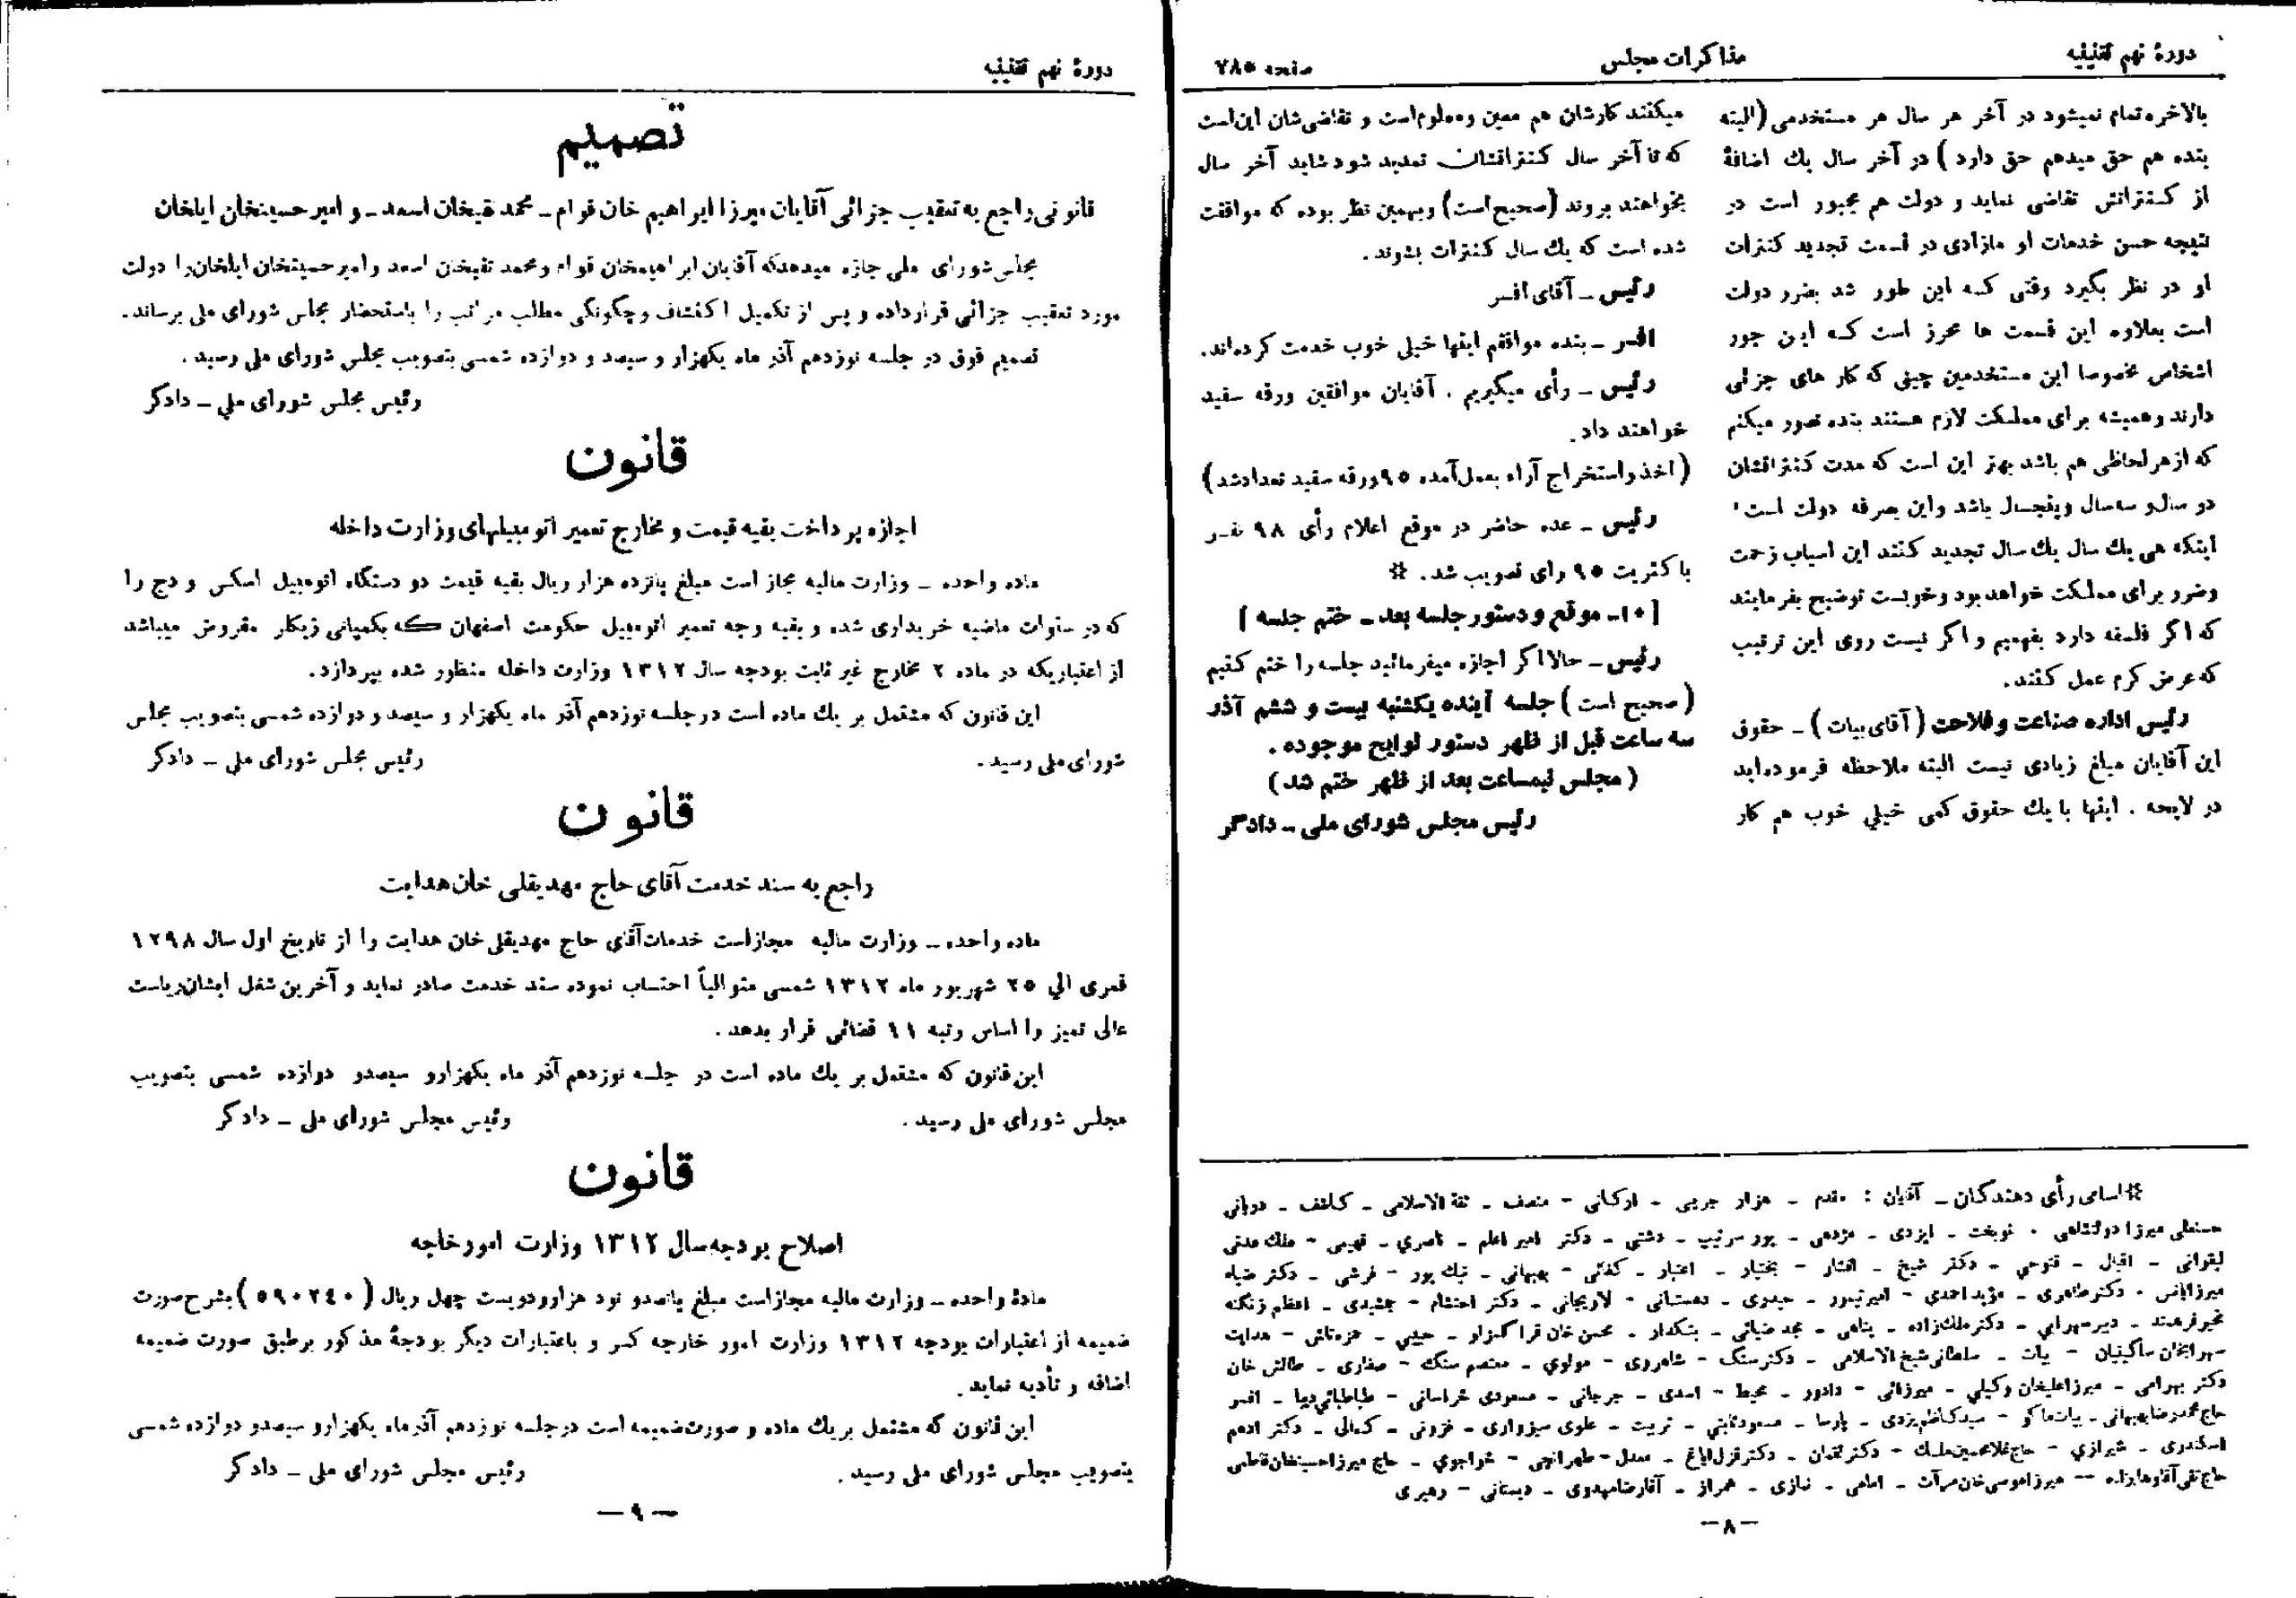 دورهٔ نهم تقنینیه
مذاکرات مجلس
صفحه ۷۸۵
بالاخره تمام نمیشود در آخر هر سال هر مستخدمی (البته
بنده هم حق میدهم حق دارد) در آخر سال یك اضافهٔ
از کنتراتش تقاضی نماید و دولت هم مجبور است در
نتیجه حسن خدمات او مازادی در قسمت تجدید کنترات
او در نظر بگیرد وقتی که این طور شد بضرر دولت
است بعلاوه این قسمت ها محرز است که این جور
اشخاص مخصوصا این مستخدمین چینی که کار های جزئی
دارند و همیشه برای مملکت لازم هستند بنده تصور میکنم
که از هر لحاظی هم باشد بهتر این است که مدت کنتراتشان
دو سال و سه سال و پنجسال باشد و این بصرفه دولت است
اینکه هی یك سال یك سال تجدید کنند این اسباب زحمت
وضرر برای مملکت خواهد بود و خوبست توضیح بفرمایند
که اگر فلسفه دارد بفهمیم و اگر نیست روی این ترتیب
که عرض کرم عمل کنند.
رئیس اداره صناعت و فلاحت (آقای بیات) ـ حقوق
این آقایان مبلغ زیادی نیست البته ملاحظه فرموده‌اید
در لایحه . اینها با یك حقوق کمی خیلی خوب هم کار
میکنند کارشان هم معین ومعلوم‌است و تقاضی‌شان این‌است
که تا آخر سال کنتراتشان تمدید شود شاید آخر سال
بخواهند بروند (صحیح است) وبهمین نظر بوده که موافقت
شده است که یك سال کنترات بشوند.
رئیس ـ آقای افسر
افسر ـ بنده موافقم اینها خیلی خوب خدمت کرده‌اند.
رئیس ـ رأی میگیریم . آقایان موافقین ورقه سفید
خواهند داد.
(اخذ واستخراج آراء بعمل‌آمده ۹۵ ورقه سفید تعداد شد)
رئیس ـ عده حاضر در موقع اعلام رأی ۹۸ نفر
با کثریت ۹۵ رای تصویب شد. #
[۱۰ـ موقع و دستور جلسه بعد ـ ختم جلسه]
رئیس ـ حالا اگر اجازه میفرمائید جلسه را ختم کنیم
(صحیح است) جلسه آینده یکشنبه بیست و ششم آذر
سه ساعت قبل از ظهر دستور لوایح موجوده.
(مجلس نیمساعت بعد از ظهر ختم شد)
رئیس مجلس شورای ملی ـ دادگر
#اسامی رأی دهندگان ـ آقایان : مقدم ـ هزار جریبی ـ اورکانی ـ منصف ـ ثقة الاسلامی ـ کاشف ـ دربانی
حسنعلی میرزا دولتشاهی . نوبخت ـ ایزدی ـ مؤدهی ـ پور سرتیپ ـ دشتی ـ دکتر امیر اعلم ـ ناصری ـ فهیمی ـ ملك مدنی
لیقوانی ـ اقبال ـ فتوحی ـ دکتر شیخ ـ افشار ـ بختیار ـ اعتبار ـ کفائی ـ بهبهانی ـ نیك پور ـ فرشی ـ دکتر ضیاء
میرزایانس . دکتر طاهری ـ مؤید احمدی ـ امیر تیمور ـ حیدری ـ دهستانی ـ لاریجانی ـ دکتر احتشام ـ جمشیدی ـ اعظم زنگنه
مخبر فرهمند ـ دبیر سهرابی ـ دکتر ملك‌زاده ـ پناهی ـ مجد ضیائی ـ بنکدار ـ محسن خان قراگوزلو ـ حبیبی ـ حمزه‌تاش ـ هدایت
سهرابخان ساگینیان ـ بیات ـ سلطانی شیخ الاسلامی ـ دکتر سنگ ـ شاهرودی ـ مولوی ـ معتصم سنگ ـ صفاری ـ طالش خان
دکتر بهرامی ـ میرزا علیخان وکیلی ـ میرزائی ـ دادور ـ محیط ـ اسدی ـ جرجانی ـ مسعودی خراسانی ـ طباطبائی دیبا ـ افسر
حاج محمدرضا بهبهانی ـ بیات ماکو ـ سید کاظم یزدی ـ پارسا ـ مسعود ثابتی ـ تربیت ـ علوی سبزواری ـ فزونی ـ کمالی ـ دکتر ادهم
اسکندری ـ شیرازی ـ حاج غلامحسین ملك ـ دکتر لقمان ـ دکتر قزل‌ایاغ ـ معدل ـ طهرانچی ـ خواجوی ـ حاج میرزا حسینخان فاطمی
حاج تقی آقا وهابزاده ـ میرزا موسی خان مرآت ـ امامی ـ نمازی ـ همراز ـ آقا رضا مهدوی ـ دبستانی ـ رهبری
ـ ۸ ـ
دورهٔ نهم تقنینیه
تصمیم
قانونی راجع به تعقیب جزائی آقایان میرزا ابراهیم خان قوام ـ محمد تقیخان اسعد ـ و امیر حسینخان ایلخان
مجلس شورای ملی جازه میدهدکه آقایان ابراهیمخان قوام ومحمد تقیخان اسعد وامیر حسینخان ایلخان را دولت
مورد تعقیب جزائی قرار داده و پس از تکمیل اکتشاف و چگونگی مطلب مراتب را باستحضار مجلس شورای ملی برساند.
تصمیم فوق در جلسه نوزدهم آذر ماه یکهزار و سیصد و دوازده شمسی بتصویب مجلس شورای ملی رسید.
رئیس مجلس شورای ملی ـ دادگر
قانون
اجازه پرداخت بقیه قیمت و مخارج تعمیر اتومبیلهای وزارت داخله
ماده واحده ـ وزارت مالیه مجاز است مبلغ پانزده هزار ریال بقیه قیمت دو دستگاه اتومبیل اسکس و دج را
که در سنوات ماضیه خریداری شده و بقیه وجه تعمیر اتومبیل حکومت اصفهان که بکمپانی زیکلر مقروض میباشد
از اعتباریکه در ماده ۲ مخارج غیر ثابت بودجه سال ۱۳۱۲ وزارت داخله منظور شده بپردازد.
این قانون که مشتمل بر یك ماده است در جلسه نوزدهم آذر ماه یکهزار و سیصد و دوازده شمسی بتصویب مجلس
شورای ملی رسید.
رئیس مجلس شورای ملی ـ دادگر
قانون
راجع به سند خدمت آقای حاج مهدیقلی خان هدایت
ماده واحده ـ وزارت مالیه مجازاست خدمات‌آقای حاج مهدیقلی خان هدایت را از تاریخ اول سال ۱۲۹۸
قمری الی ۲۵ شهریور ماه ۱۳۱۲ شمسی متوالیاً احتساب نموده سند خدمت صادر نماید و آخرین شغل ایشان‌ریاست
عالی تمیز را اساس رتبه ۱۱ قضائی قرار بدهد.
این قانون که مشتمل بر یك ماده است در جلسه نوزدهم آذر ماه یکهزارو سیصدو دوازده شمسی بتصویب
مجلس شورای ملی رسید.
رئیس مجلس شورای ملی ـ دادگر
قانون
اصلاح بودجه سال ۱۳۱۲ وزارت امورخاجه
مادهٔ واحده ـ وزارت مالیه مجازاست مبلغ پانصدو نود هزارو دویست چهل ریال (۵۹۰۲۴۰) بشرح صورت
ضمیمه از اعتبارات بودجه ۱۳۱۲ وزارت امور خارجه کسر و باعتبارات دیگر بودجهٔ مذکور برطبق صورت ضمیمه
اضافه و تأدیه نماید.
این قانون که مشتمل بر یك ماده و صورت ضمیمه است در جلسه نوزدهم آذر ماه یکهزارو سیصدو دوازده شمسی
بتصویب مجلس شورای ملی رسید.
رئیس مجلس شورای ملی ـ دادگر
ـ ۹ ـ